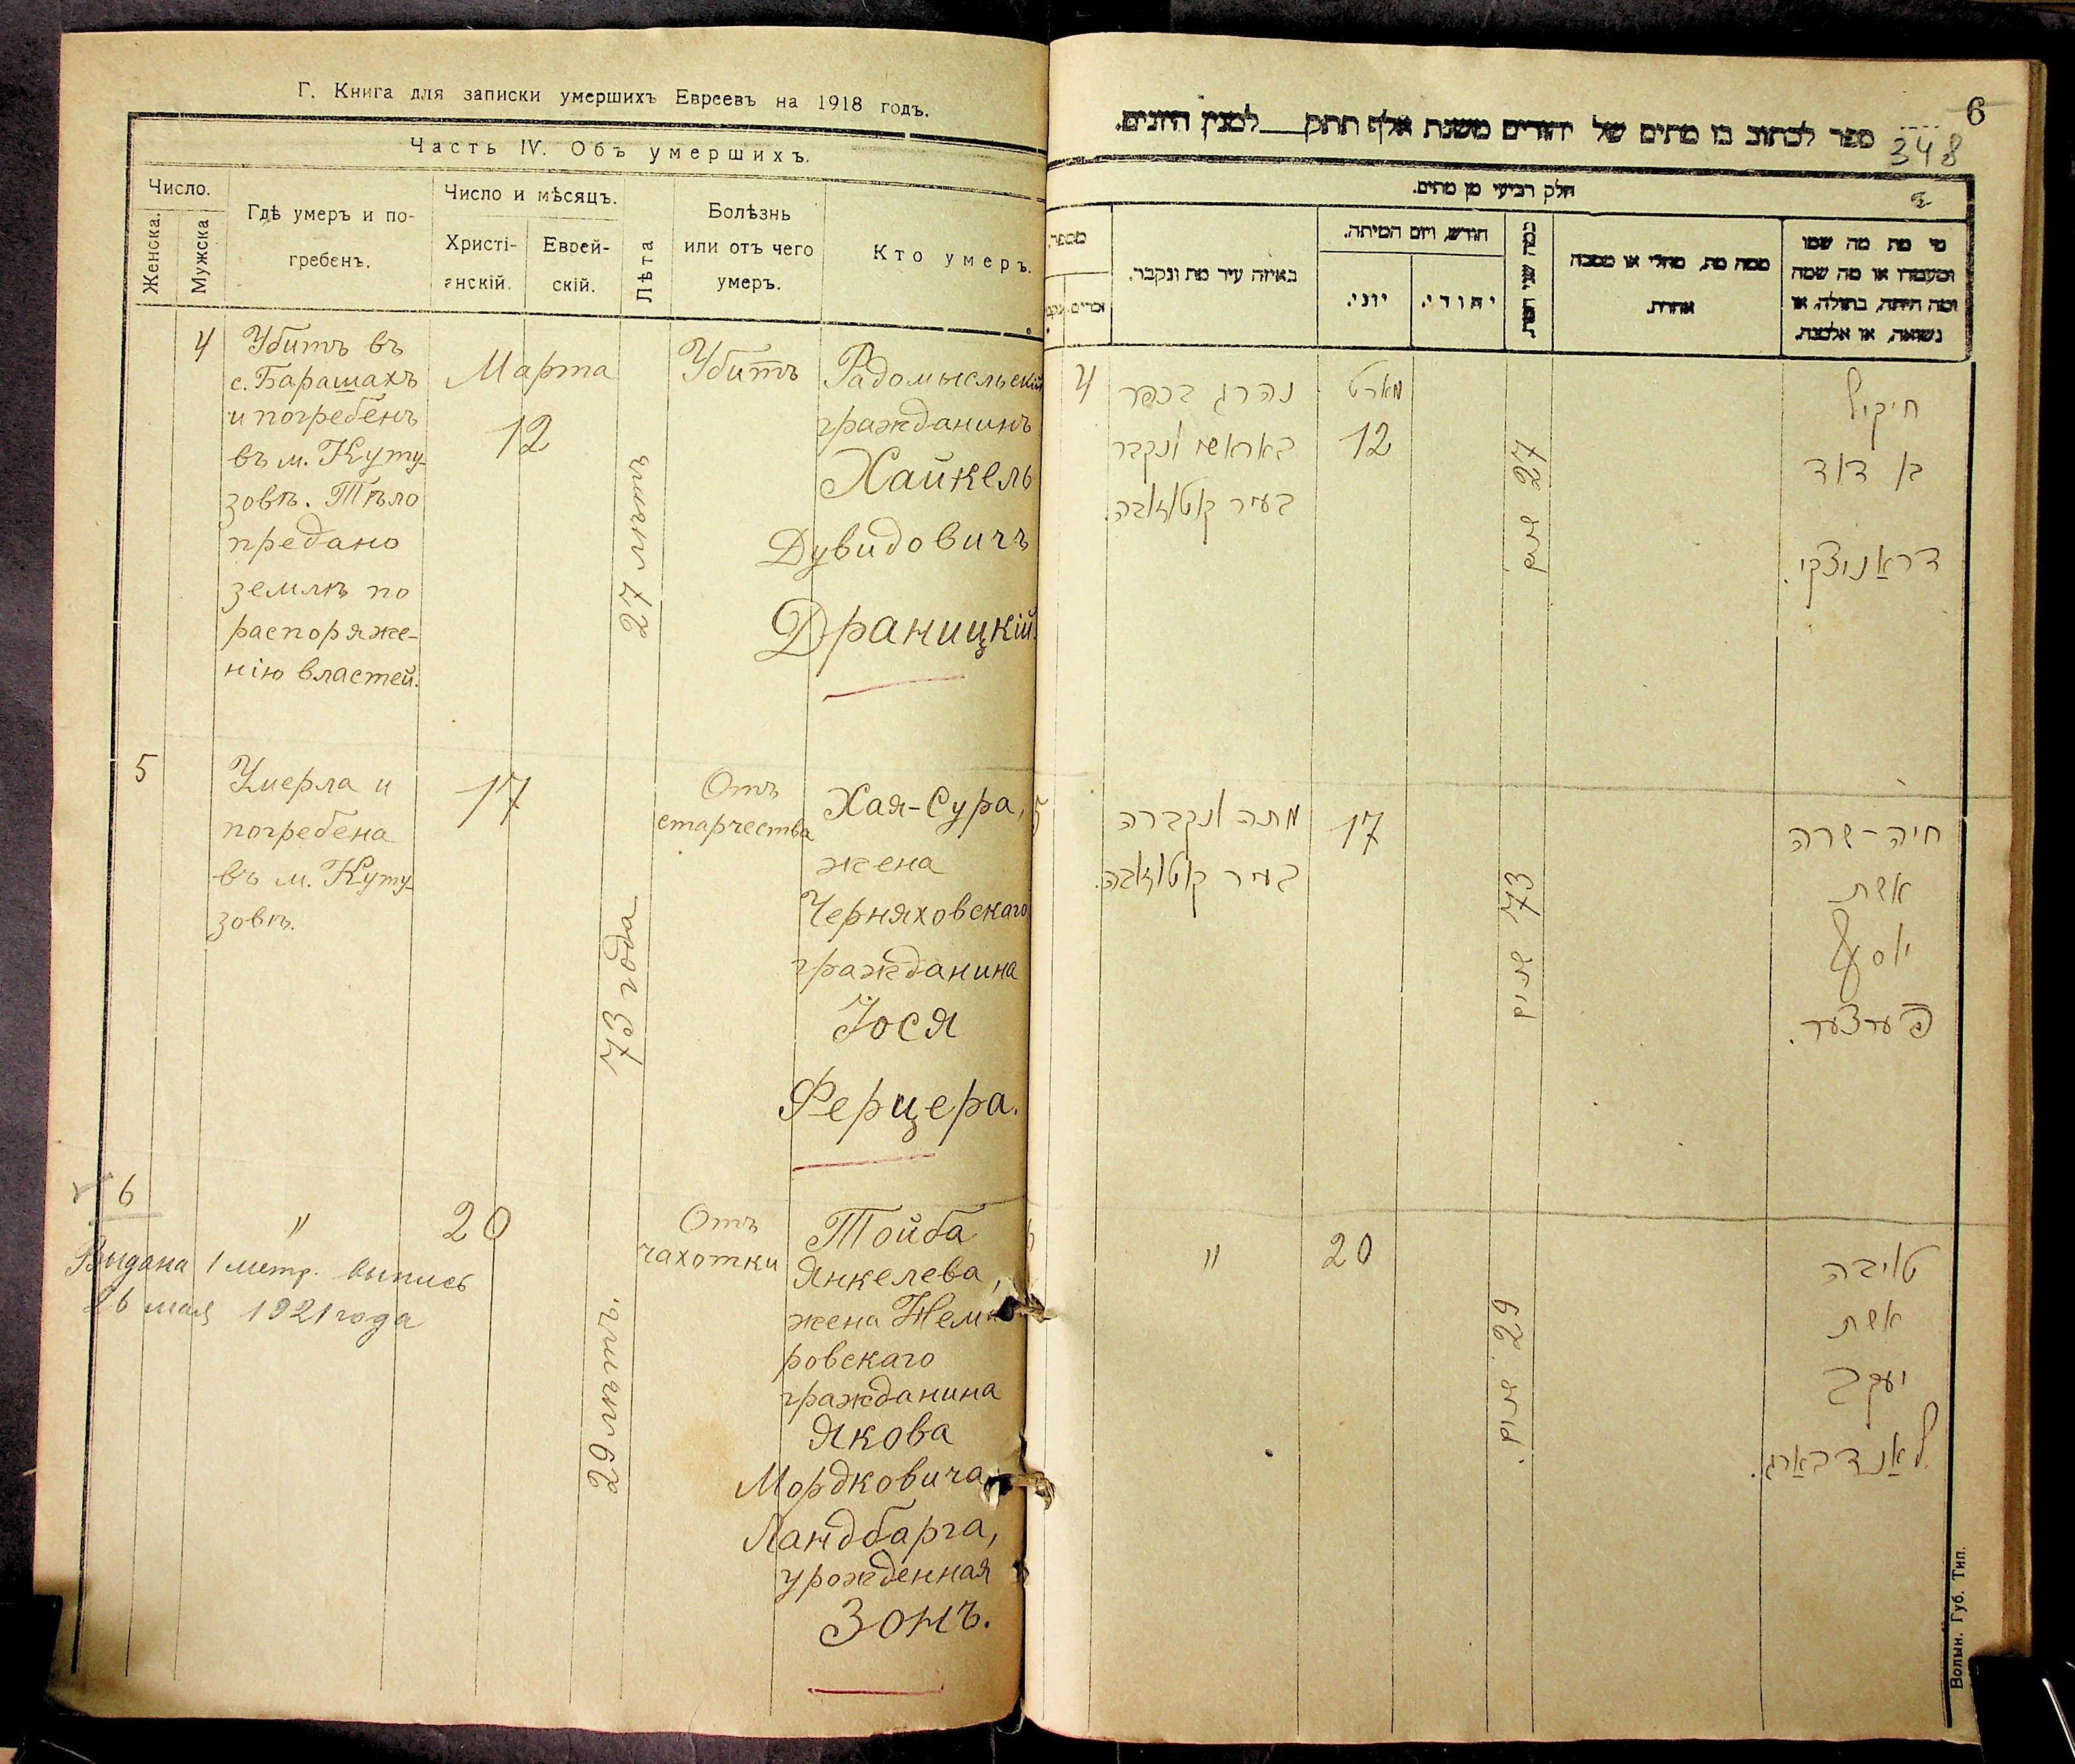 Г. Книга для записки умершихъ Евреевъ на 1918 годъ.
Часть IV. Объ умершихъ.
Число.
Женска.
Мужска
Гдѣ умеръ и по-
гребенъ.
Число и мѣсяцъ.
Христі-
анскій.
Еврей-
скій.
Лѣта
Болѣзнь
или отъ чего
умеръ.
Кто умеръ.
4
Убитъ въ
с. Барашахъ
и погребенъ
въ м. Куту-
зовѣ. Тѣло
предано
землѣ по
распоряже-
нію властей.
Марта
12
27 лѣтъ
Убитъ
Радомысльскій
гражданинъ
Хайкель
Дувидовичъ
Драницкій.
5
Умерла и
погребена
въ м. Куту-
зовѣ.
17
73 года
Отъ
старчества
Хая-Сура,
жена
Черняховскаго
гражданина
Іося
Ферцера.
6
"
20
29 лѣтъ.
Отъ
чахотки
Тойба
Янкелева,
жена Неми
ровскаго
гражданина
Якова
Мордковича
Ландбарга,
урожденная
Зонъ.
Выдана 1 метр. выпись
26 мая 1921 года
6
348
ספר לכתוב בו מתים של יהודים משנת אלף תתק___למנין היונים.
חלק רביעי מן מתים.
מספר
זכרים
באיזה עיר מת ונקבר.
חודש, ויום המיתה.
יוני.
יהודי.
כמה שני המת.
ממה מת, מחלי או מסבה
אחרת.
מי מת מה שמו
ומעמדו או מה שמה
ומה היתה, בתולה, או
נשואה, או אלמנה.
4
נהרג בכפר
באראשי ונקבר
בעיר קוטוזובה.
מארט
12
27 שנים
חייקיל
בן דוד
דראַניצקי.
5
מתה ונקברה
בעיר קוטוזובה.
17
73 שנים
חיה-שרה
אשת
יוסף
פערצער.
"
20
29 שנים.
טויבה
אשת
יעקב
לאַנדבאַרג.
Волын. Губ. Тип.